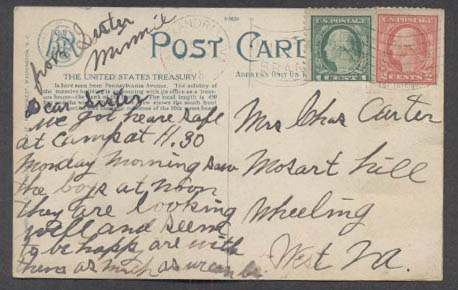 from Sister
Minnie
POST CARD
THE UNITED STATES TREASURY
As best seen from Pennsylvania Avenue. The solidity of
U.S. POSTAGE
1 CENT 1
U.S. POSTAGE
2 CENTS 2
Dear Sister
we got heare safe
at camp at 11.30
Monday Morning saw
the boys at noon
they are looking
well and seem
to be happ are with
them as much as we can be
Mrs Chas Carter
Mosart Hill
Wheeling
West Va.